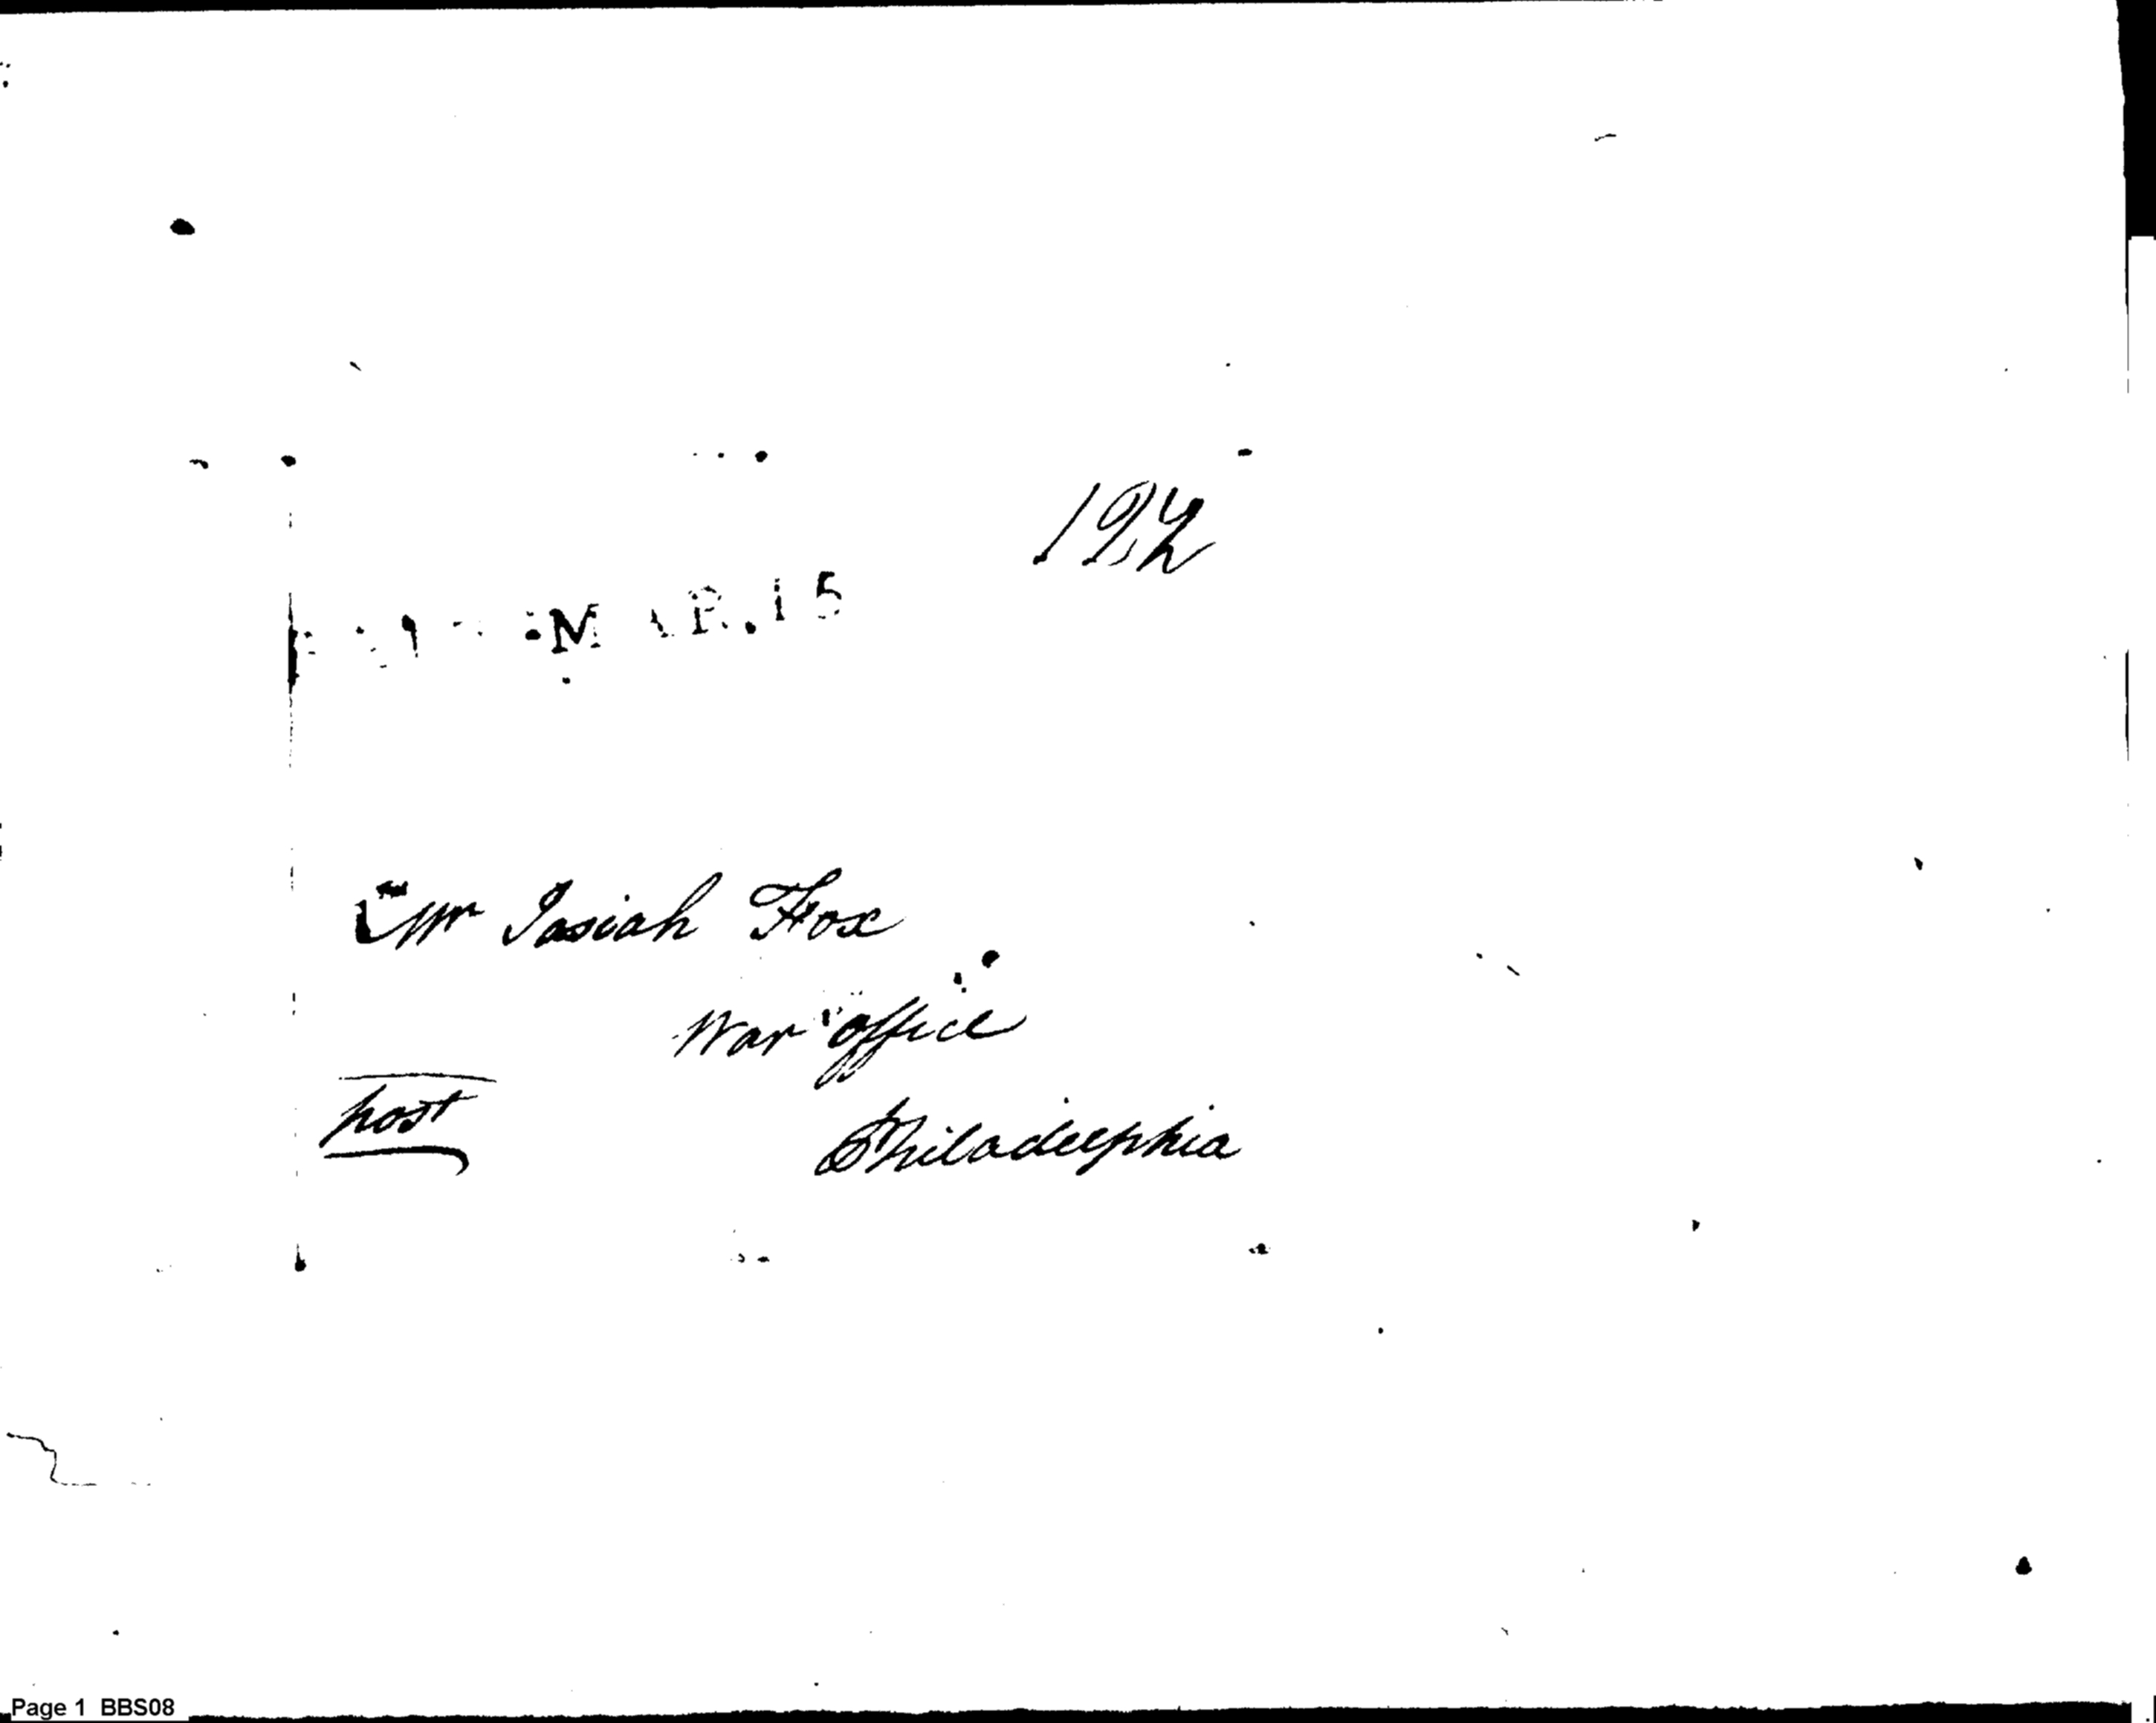 MAR.15
Mr Josiah Fox
War Office
post
Philadelphia
Page 1 BBS08